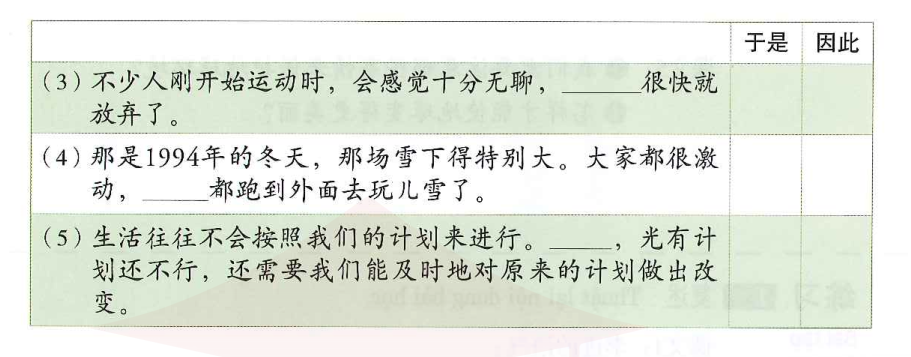 于是 因此
（3）不少人刚开始运动时，会感觉十分无聊，______很快就
放弃了。
（4）那是1994年的冬天，那场雪下得特别大。大家都很激
动，______都跑到外面去玩儿雪了。
（5）生活往往不会按照我们的计划来进行。______，光有计
划还不行，还需要我们能及时地对原来的计划做出改
变。